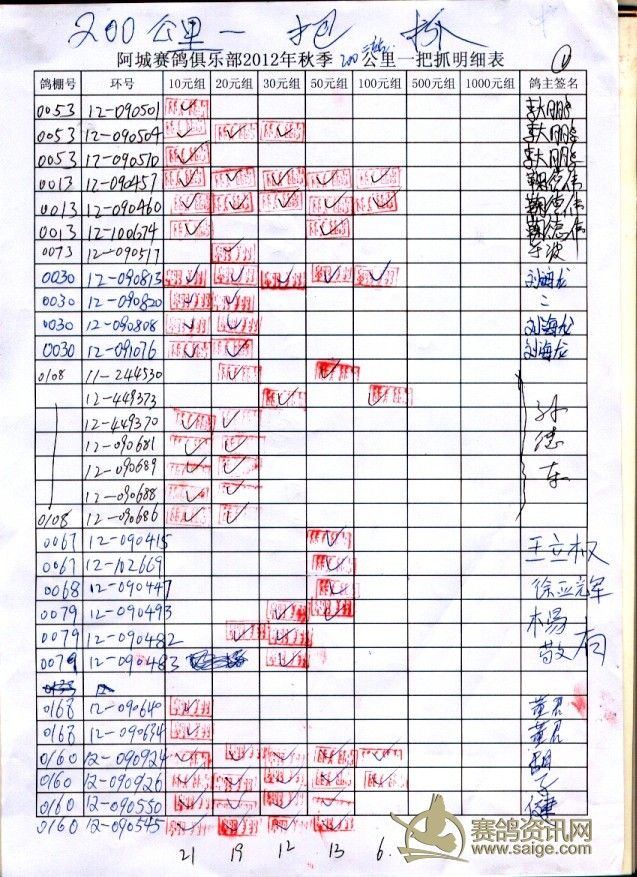 200公里一把抓
阿城赛鸽俱乐部2012年秋季200公里一把抓明细表 ①
鸽棚号 环号 10元组 20元组 30元组 50元组 100元组 500元组 1000元组 鸽主签名
0053 12-090501 ✓ 李大鹏
0053 12-090504 ✓ ✓ ✓ 李大鹏
0053 12-090510 ✓ 李大鹏
0013 12-090457 ✓ ✓ ✓ ✓ ✓ 鞠德伟
0013 12-090460 ✓ ✓ ✓ ✓ ✓ 鞠德伟
0013 12-100674 ✓ ✓ 鞠德伟
0073 12-090517 ✓ 于波
0030 12-090813 ✓ ✓ ✓ ✓ ✓ 刘海龙
0030 12-090820 ✓ ✓
0030 12-090808 ✓ ✓ 刘海龙
0030 12-091076 ✓ ✓ 刘海龙
0108 11-244530 ✓ ✓
12-449373 ✓ ✓ 孙
12-449370 ✓ ✓
12-090681 ✓ ✓ 德
12-090689 ✓ ✓ 东
12-090688 ✓ ✓
0108 12-090686 ✓ ✓
0067 12-090415 ✓ 王立权
0067 12-102669 ✓
0068 12-090447 ✓ 徐亚辉
0079 12-090493 ✓ ✓ 杨
0079 12-090482 ✓ ✓
0079 12-090483 ✓ 敬
0168 12-090640 ✓ 董君
0168 12-090634 ✓ 董君
0160 12-090924 ✓ ✓ ✓ ✓ ✓
0160 12-090926 ✓ ✓ ✓ ✓ ✓
0160 12-090550 ✓ ✓ ✓ ✓
0160 12-090545 ✓ ✓ ✓ ✓
21 19 12 13 6
赛鸽资讯网
www.saige.com